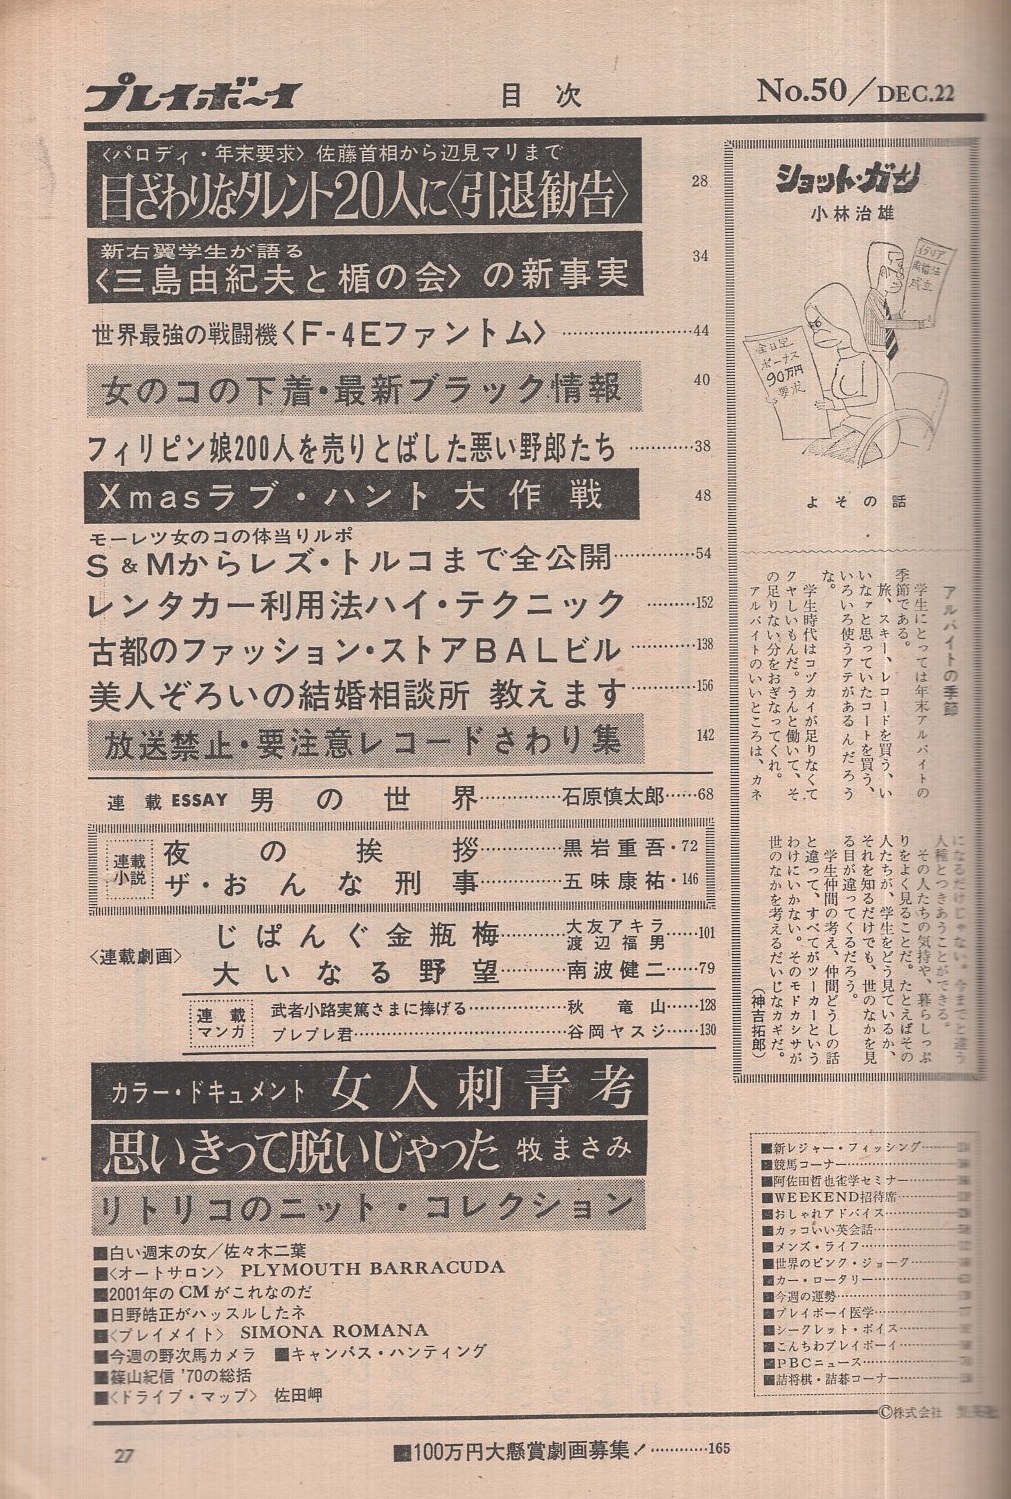 プレイボーイ
目次
No.50／DEC.22
〈パロディ・年末要求〉佐藤首相から辺見マリまで
目ざわりなタレント20人に〈引退勧告〉
28
新右翼学生が語る
〈三島由紀夫と楯の会〉の新事実
34
世界最強の戦闘機〈F-4Eファントム〉…………44
女のコの下着・最新ブラック情報
40
フィリピン娘200人を売りとばした悪い野郎たち…………38
Xmasラブ・ハント大作戦
48
モーレツ女のコの体当りルポ
S&Mからレズ・トルコまで全公開…………54
レンタカー利用法ハイ・テクニック…………152
古都のファッション・ストアBALビル…………138
美人ぞろいの結婚相談所 教えます…………156
放送禁止・要注意レコードさわり集
142
連載ESSAY 男の世界…………石原慎太郎……68
連載小説
夜の挨拶…………黒岩重吾・72
ザ・おんな刑事…………五味康祐・146
〈連載劇画〉
じぱんぐ金瓶梅…………大友アキラ 渡辺福男…101
大いなる野望…………南波健二…79
連載マンガ
武者小路実篤さまに捧げる…………秋竜山…128
プレプレ君…………谷岡ヤスジ…130
カラー・ドキュメント 女人刺青考
思いきって脱いじゃった 牧まさみ
リトリコのニット・コレクション
■白い週末の女／佐々木二葉
■〈オートサロン〉 PLYMOUTH BARRACUDA
■2001年のCMがこれなのだ
■日野皓正がハッスルしたネ
■〈プレイメイト〉 SIMONA ROMANA
■今週の野次馬カメラ ■キャンパス・ハンティング
■篠山紀信'70の総括
■〈ドライブ・マップ〉 佐田岬
ショット・ガン
小林治雄
イタリア
離婚法
成立
全日空
ボーナス
90万円
要求
よその話
アルバイトの季節
学生にとっては年末アルバイトの
季節である。
旅、スキー、レコードを買う、い
いなァと思っていたコートを買う、
いろいろ使うアテがあるんだろう
な。
学生時代はコヅカイが足りなくて
クヤしいもんだ。うんと働いて、そ
の足りない分をおぎなってくれ。
アルバイトのいいところは、カネ
になるだけじゃない。今までと違う
人種とつきあうことができる。
その人たちの気持や、暮らしっぷ
りをよく見ることだ。たとえばその
人たちが、学生をどう見ているか、
それを知るだけでも、世のなかを見
る目が違ってくるだろう。
学生仲間の考え、仲間どうしの話
と違って、すべてがツーカーという
わけにいかない。そのモドカシサが
世のなかを考えるだいじなカギだ。
（神吉拓郎）
■新レジャー・フィッシング
■競馬コーナー
■阿佐田哲也雀学セミナー
■WEEKEND招待席
■おしゃれアドバイス
■カッコいい英会話
■メンズ・ライフ
■世界のピンク・ジョーク
■カー・ロータリー
■今週の運勢
■プレイボーイ医学
■シークレット・ボイス
■こんちわプレイボーイ
■PBCニュース
■詰将棋・詰碁コーナー
©株式会社
27
■100万円大懸賞劇画募集！…………165